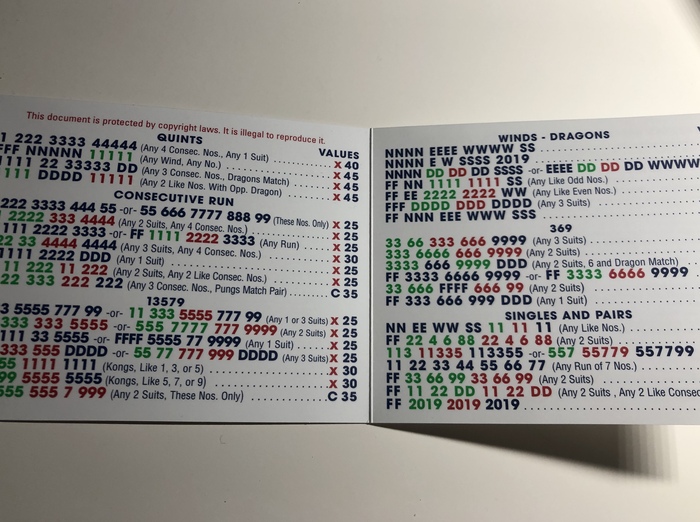 This document is protected by copyright laws. It is illegal to reproduce it.
QUINTS
VALUES
1 222 3333 44444 (Any 4 Consec. Nos., Any 1 Suit) X 40
FFF NNNNN 11111 (Any Wind, Any No.) X 45
1111 22 3333 DD (Any 3 Consec. Nos., Dragons Match) X 45
111 DDDD 11111 (Any 2 Like Nos. With Opp. Dragon) X 45
CONSECUTIVE RUN
222 3333 444 55 -or- 55 666 7777 888 99 (These Nos. Only) X 25
2222 333 4444 (Any 2 Suits, Any 4 Consec. Nos.) X 25
1111 2222 3333 -or- FF 1111 2222 3333 (Any Run) X 25
22 33 4444 4444 (Any 3 Suits, Any 4 Consec. Nos.) X 25
1111 2222 DDD (Any 1 Suit) X 30
11 222 11 222 (Any 2 Suits, Any 2 Like Consec. Nos.) X 25
22 333 222 222 (Any 3 Consec. Nos., Pungs Match Pair) C 35
13579
3 5555 777 99 -or- 11 333 5555 777 99 (Any 1 or 3 Suits) X 25
333 333 5555 -or- 555 7777 777 9999 (Any 2 Suits) X 25
111 33 5555 -or- FFFF 5555 77 9999 (Any 1 Suit) X 25
333 555 DDDD -or- 55 77 777 999 DDDD (Any 3 Suits) X 25
55 1111 1111 (Kongs, Like 1, 3, or 5) X 30
99 5555 5555 (Kongs, Like 5, 7, or 9) X 30
555 555 7 999 (Any 2 Suits, These Nos. Only) C 35
WINDS - DRAGONS
NNNN EEEE WWWW SS
NNNN E W SSSS 2019
NNNN DD DD DD SSSS -or- EEEE DD DD DD WWWW
FF NN 1111 1111 SS (Any Like Odd Nos.)
FF EE 2222 2222 WW (Any Like Even Nos.)
FFF DDDD DDD DDDD (Any 3 Suits)
FF NNN EEE WWW SSS
369
33 66 333 666 9999 (Any 3 Suits)
3333 6666 666 9999 (Any 2 Suits)
3333 666 9999 DDD (Any 2 Suits, 6 and Dragon Match)
FF 3333 6666 9999 -or- FF 3333 6666 9999
33 666 FFFF 666 99 (Any 2 Suits)
FF 333 666 999 DDD (Any 1 Suit)
SINGLES AND PAIRS
NN EE WW SS 11 11 11 (Any Like Nos.)
FF 22 4 6 88 22 4 6 88 (Any 2 Suits)
113 11335 113355 -or- 557 55779 557799
11 22 33 44 55 66 77 (Any Run of 7 Nos.)
FF 33 66 99 33 66 99 (Any 2 Suits)
FF 11 22 DD 11 22 DD (Any 2 Suits , Any 2 Like Consec
FF 2019 2019 2019